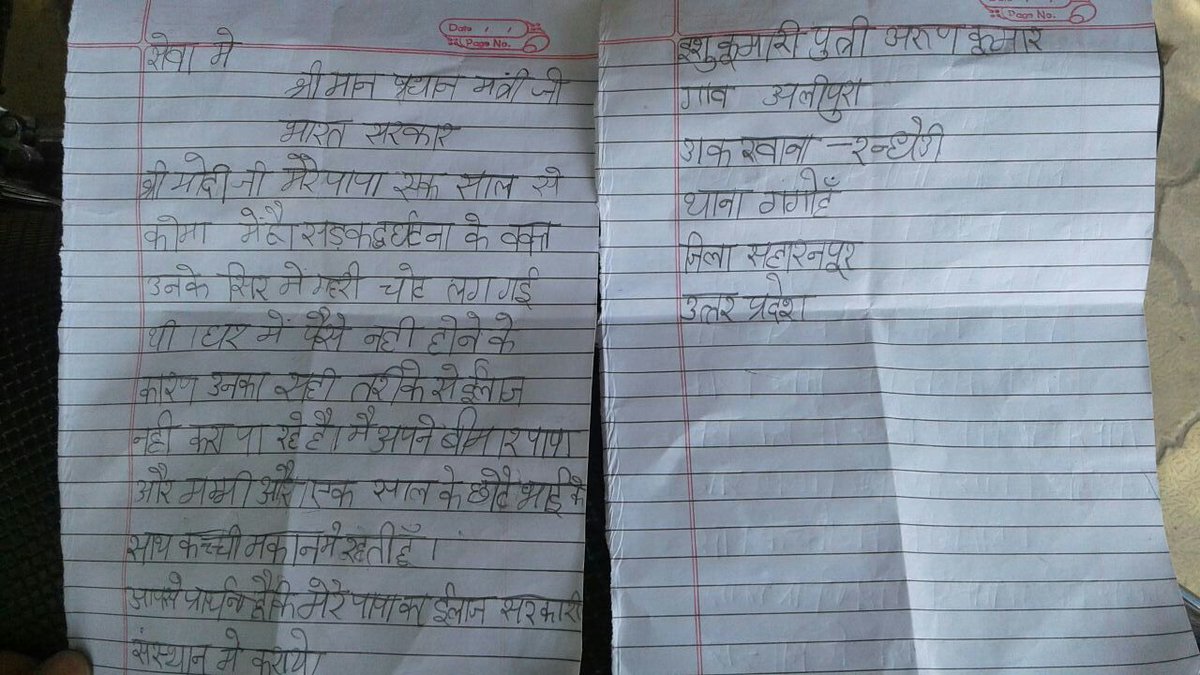 Date / /
Page No.
सेवा मे
श्रीमान प्रधान मंत्री जी
भारत सरकार
श्री मोदी जी मेरे पापा एक साल से
कोमा में है। सड़क दुर्घटना के वक्त
उनके सिर मे गहरी चोट लग गई
थी। घर में पैसे नही होने के
कारण उनका सही तरीके से ईलाज
नही करा पा रहे है। मै अपने बीमार पापा
और मम्मी और एक साल के छोटे भाई के
साथ कच्ची मकान मे रहती हूँ।
आपसे प्रार्थना है कि मेरे पापा का ईलाज सरकारी
संस्थान मे कराये।
Date / /
Page No.
इशु कुमारी पुत्री अरुण कुमार
गाव अलीपुरा
डाक खाना - रन्धेडी
थाना गंगोहँ
जिला सहारनपूर
उत्तर प्रदेश